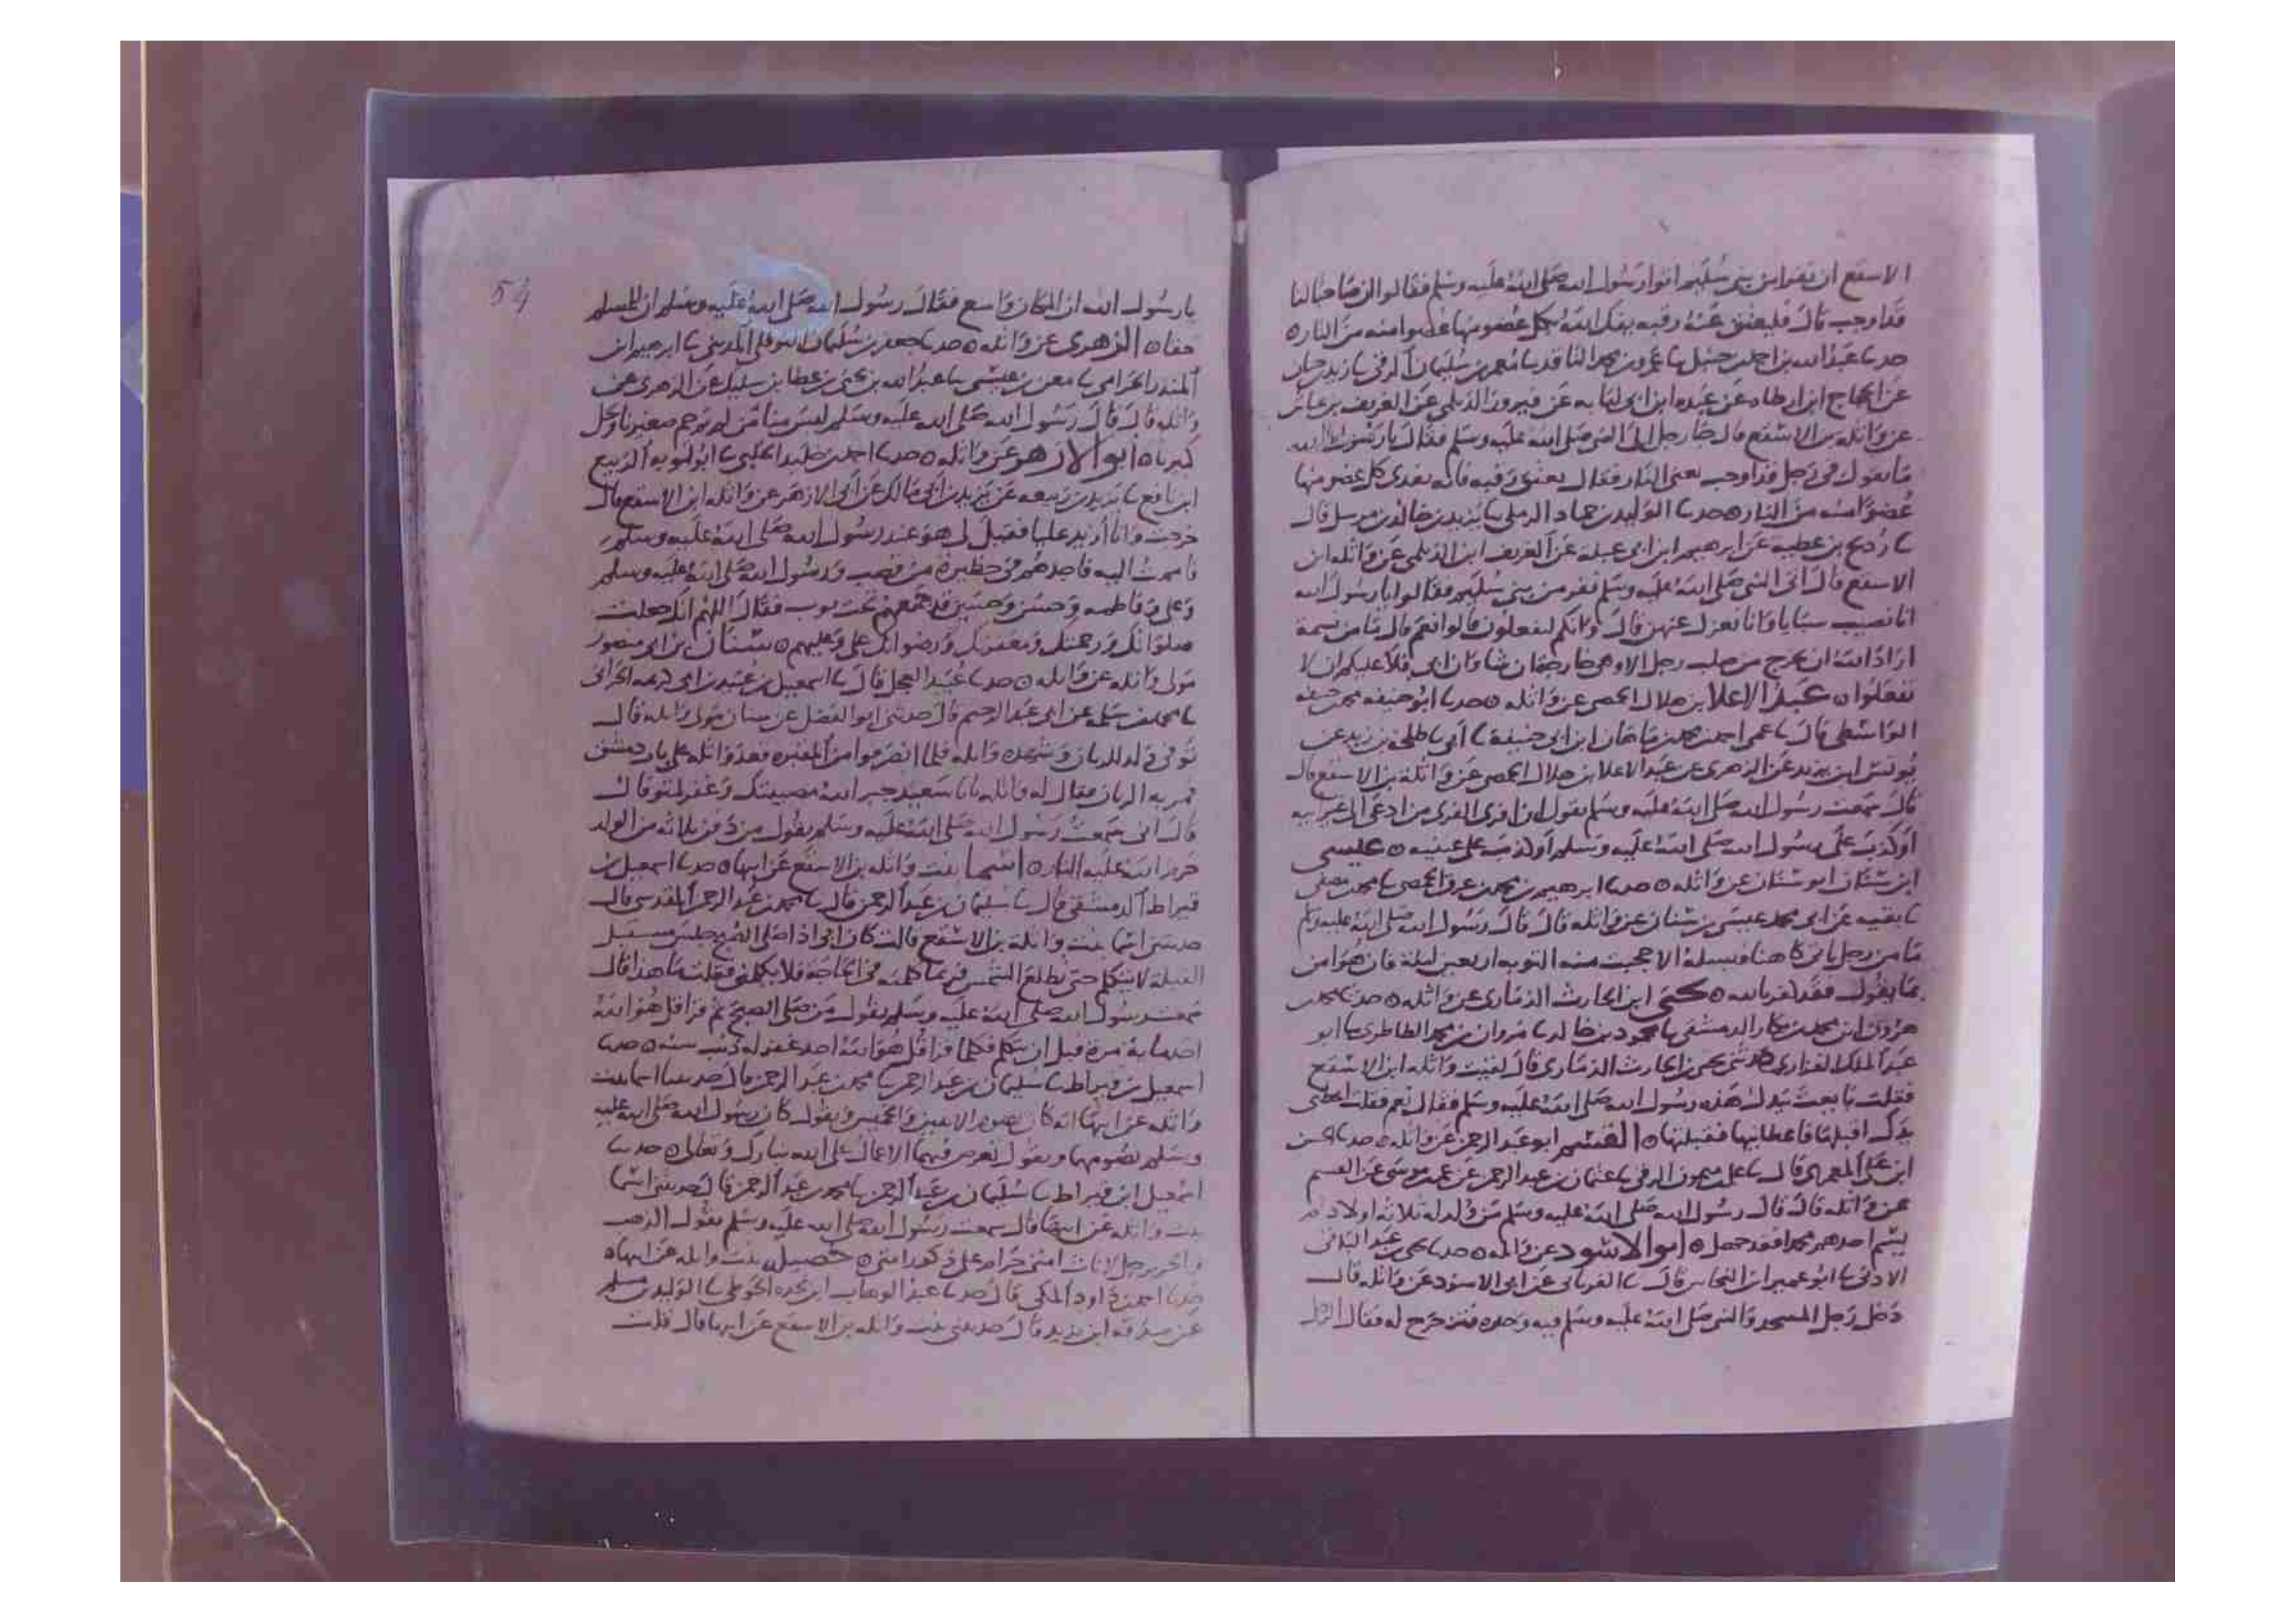 الاسقع ان نفرا من بني سليم اتوا رسول الله صلى الله عليه وسلم فقالوا ان صاحبا لنا
قد اوجب قال فليعتق عنه رقبه يفك الله بكل عضو منها عضوا منه من النار ه
حدثنا عبد الله بن احمد بن حنبل ثنا عمرو بن محمد الناقد ثنا معمر بن سليمان الرقي ثنا زيد بن حبان
عن الحجاج ابن ارطاه عن ابن ابي عن فيروز الديلمي عن الغريف بن
عن واثله بن الاسقع قال جا رجل الى النبي صلى الله عليه وسلم فقال يا رسول الله
ما تقول في رجل قد اوجب يعني النار فقال يعتق رقبه فانه يفدى كل عضو منها
عضوا منه من النار ه حدثنا الوليد بن حماد الرملي ثنا يزيد بن خالد بن مرسل قال
ثنا رديح بن عطيه عن ابرهيم ابن ابي عبلة عن الغريف ابن الديلمي عن واثله ابن
الاسقع قال اتى النبي صلى الله عليه وسلم نفر من بني سليم فقالوا يا رسول الله
انا نصيب سبايا وانا نعزل عنهن قال وانكم لتفعلون قالوا نعم قال ما من نسمة
اراد الله ان يخرج من صلب رجل الا وهي خارجة ان شا وان ابى فلا عليكم ان لا
تفعلوا ه عبد الاعلا بن هلال الحمصي عن واثله ه حدثنا ابو حنيفه محمد بن حنيفه
الواسطي قال ثنا عمي احمد بن محمد بن ماهان ابن ابي حنيفة ثنا ابي ثنا طلحة بن زيد عن
يونس ابن يزيد عن الزهري عن عبد الاعلا بن هلال الحمصي عن واثلة بن الاسقع قال
قال سمعت رسول الله صلى الله عليه وسلم يقول ان افرى الفرى من ادعى الى غير ابيه
او كذب على رسول الله صلى الله عليه وسلم او كذب على عينيه ه عيسى
ابن سنان ابو سنان عن واثله ه حدثنا ابرهيم بن محمد بن عرق الحمصي ثنا محمد بن مصفى
ثنا بقيه عن ابي محمد عيسى بن سنان عن واثله قال قال رسول الله صلى الله عليه وسلم
ما من رجل ياتي كاهنا فيسله الا حجبت منه التوبه اربعين ليلة فان هو امن
بما يقول فقد كفر بالله ه يحيى ابن الحارث الذماري عن واثله ه حدثنا محمد بن
هرون ابن محمد بن بكار الدمشقي ثنا محمود بن خالد ثنا مروان بن محمد الطاطري ثنا ابو
عبد الملك الفزاري حدثني يحيى بن الحارث الذماري قال لقيت واثله ابن الاسقع
فقلت بايعت بيدك هذه رسول الله صلى الله عليه وسلم فقال نعم فقلت اعطني
يدك اقبلها فاعطانيها فقبلتها ه القسم ابو عبد الرحمن عن واثله ه حدثنا الحسن
ابن علي المعمري قال ثنا علي بن ميمون الرقي ثنا عثمن بن عبد الرحمن عن عمر بن موسى عن القسم
عن واثله قال قال رسول الله صلى الله عليه وسلم من ولد له ثلاثه اولاد فلم
يسم احدهم محمدا فقد جهل ه ابو الاسود عن واثله ه حدثنا يحيى بن عبد الباقي
الادني ثنا ابو عمير ابن النحاس قال ثنا الفريابي عن ابي الاسود عن واثله قال
دخل رجل المسجد والنبي صلى الله عليه وسلم فيه وحده فتزحزح له فقال الرجل
54
يا رسول الله ان المكان واسع فقال رسول الله صلى الله عليه وسلم ان للمسلم
حقا ه الزهري عن واثله ه حدثنا جعفر بن سليمان النوفلي المديني ثنا ابرهيم ابن
المنذر الحزامي ثنا معن بن عيسى ثنا عبد الله بن يحيى بن عطا بن سليك عن الزهري عن
واثله قال قال رسول الله صلى الله عليه وسلم ليس منا من لم يرحم صغيرنا ويجل
كبيرنا ه ابو الازهر عن واثله ه حدثنا احمد بن خليد الحلبي ثنا ابو توبه الربيع
ابن نافع ثنا يزيد بن ربيعه عن يزيد بن ابي مالك عن ابي الازهر عن واثله ابن الاسقع قال
خرجت وانا اريد عليا فقيل لي هو عند رسول الله صلى الله عليه وسلم
فاممت اليه فاجدهم في حظيرة من قصب ورسول الله صلى الله عليه وسلم
وعلي وفاطمه وحسن وحسين قد جمعهم تحت ثوب فقال اللهم انك جعلت
صلواتك ورحمتك ومغفرتك ورضوانك علي وعليهم ه سنان بن ابي منصور
مولى واثله عن واثله ه حدثنا عبيد العجل قال ثنا اسمعيل بن عبيد بن ابي كريمه الحراني
ثنا محمد بن سلمه عن ابي عبد الرحيم قال حدثني ابو الفضل عن سنان مولى واثله قال
توفي ولد للديان وشهده واثله فلما انصرفوا من المقبره قعد واثله على باب دمشق
فمر به الديان فقال له واثله يا ابا سعيد جبر الله مصيبتك وغفر لمتوفاك
قال اني سمعت رسول الله صلى الله عليه وسلم يقول من دفن ثلاثه من الولد
حرم الله عليه النار ه اسما بنت واثله بن الاسقع عن ابيها ه حدثنا اسمعيل بن
قيراط الدمشقي قال ثنا سليمان بن عبد الرحمن قال ثنا محمد بن عبد الرحمن المقدسي قال
حدثتني اسما بنت واثلة بن الاسقع قالت كان ابي اذا صلى الصبح جلس مستقبل
القبلة لا يتكلم حتى يطلع الشمس فربما كلمته في الحاجة فلا يكلمني فقلت ما هذا قال
سمعت رسول الله صلى الله عليه وسلم يقول من صلى الصبح ثم قرا قل هو الله
احد ماية مرة قبل ان يتكلم فكلما قرا قل هو الله احد غفر له ذنب سنه ه حدثنا
اسمعيل بن قيراط ثنا سليمان بن عبد الرحمن ثنا محمد بن عبد الرحمن قال حدثتنا اسما بنت
واثله عن ابيها انه كان يصوم الاثنين والخميس ويقول كان رسول الله صلى الله عليه
وسلم يصومهما ويقول تعرض فيهما الاعمال على الله تبارك وتعالى ه حدثنا
اسمعيل ابن قيراط ثنا سليمان بن عبد الرحمن ثنا محمد بن عبد الرحمن قال حدثتني اسما
بنت واثله عن ابيها قال سمعت رسول الله صلى الله عليه وسلم يقول الذهب
والحرير حل لاناث امتي حرام على ذكور امتي ه خصيله بنت واثله عن ابيها ه
حدثنا احمد بن داود المكي قال حدثنا عبد الوهاب ابن نجده الحوطي ثنا الوليد بن مسلم
عن صدقه ابن يزيد قال حدثتني بنت واثله بن الاسقع عن ابيها قال قلت